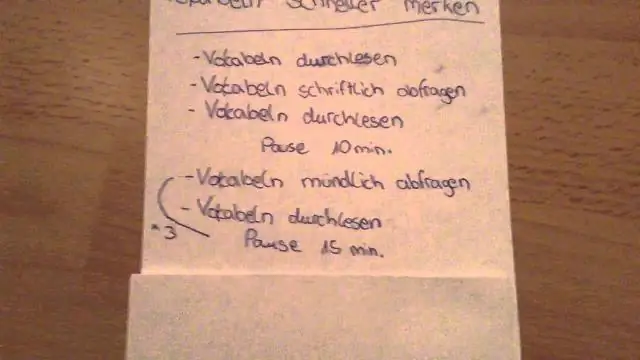 Vokabeln schneller merken
- Vokabeln durchlesen
- Vokabeln schriftlich abfragen
- Vokabeln durchlesen
Pause 10 min.
- Vokabeln mündlich abfragen
- Vokabeln durchlesen
* 3
Pause 15 min.